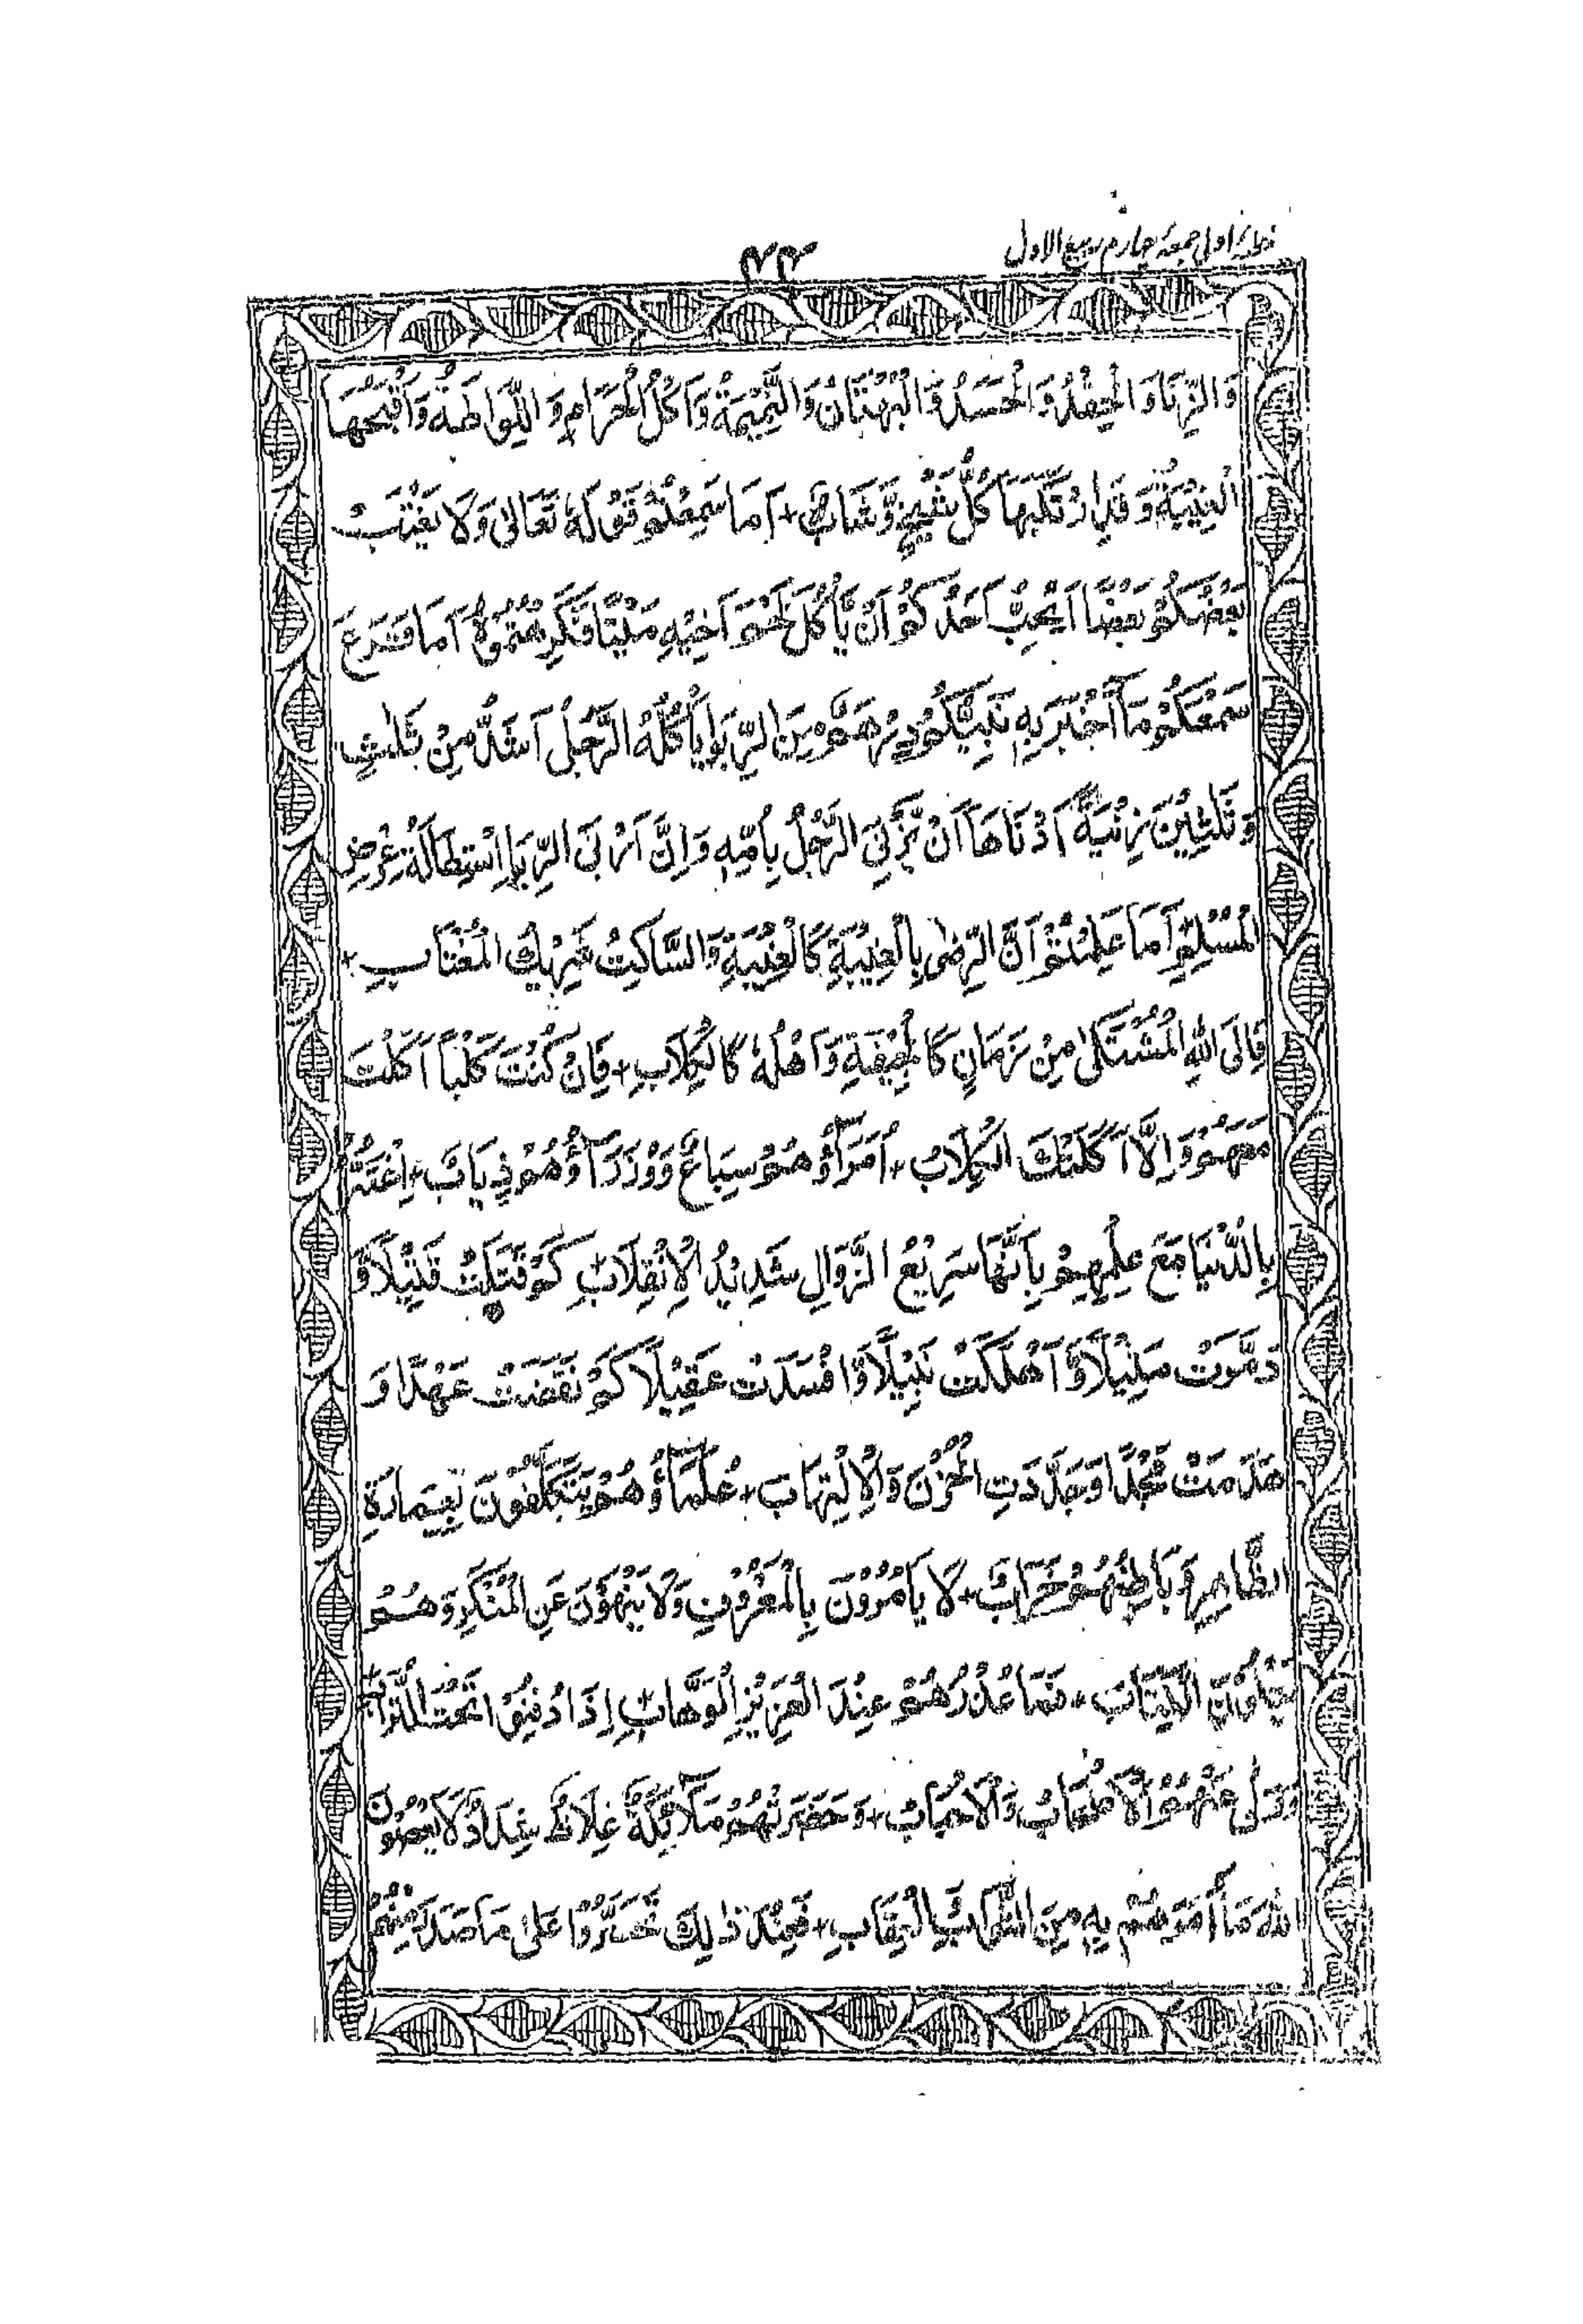 خطبۂ اولی جمعۂ چہارم ربیع الاول
۴۳
وَالزِّنَا وَالْحِقْدُ وَالْحَسَدُ وَالْبُهْتَانُ وَالنَّمِيْمَةُ وَاَكْلُ الْحَرَامِ وَاللِّوَاطَةُ وَاَقْبَحُهَا
الْغِيْبَةُ وَقَدِ ارْتَكَبَهَا كُلُّ شَيْخٍ وَّشَابٍّ + اَمَا سَمِعْتُمْ قَوْلَهٗ تَعَالٰى وَلَا يَغْتَبْ
بَعْضُكُمْ بَعْضًا اَيُحِبُّ اَحَدُكُمْ اَنْ يَّاْكُلَ لَحْمَ اَخِيْهِ مَيْتًا فَكَرِهْتُمُوْهُ اَمَا قَرَعَ
سَمْعَكُمْ مَا اَخْبَرَ بِهٖ نَبِيُّكُمْ دِرْهَمٌ مِّنَ الرِّبَوا يَاْكُلُهُ الرَّجُلُ اَشَدُّ مِنْ ثَلٰثٍ
وَثَلٰثِيْنَ زِنْيَةً اَدْنَاهَا اَنْ يَّزْنِيَ الرَّجُلُ بِاُمِّهٖ وَاِنَّ اَرْبَى الرِّبَا اِسْتِطَالَةُ عِرْضِ
الْمُسْلِمِ اَمَا عَلِمْتُمْ اَنَّ الرِّضٰى بِالْغِيْبَةِ كَالْغِيْبَةِ وَالسَّاكِتُ شَرِيْكُ الْمُغْتَابِ +
فَاِلَى اللّٰهِ الْمُشْتَكٰى مِنْ زَمَانٍ كَالْجِيْفَةِ وَاَهْلُهٗ كَالْكِلَابِ + فَاِنْ كُنْتَ كَلْبًا اَكَلْتَ
مَعَهُمْ وَاِلَّا اَكَلَتْكَ الْكِلَابُ + اُمَرَآؤُهُمْ سِبَاعٌ وَوُزَرَآؤُهُمْ ذِيَابٌ + اِغْتَرُّوْا
بِالدُّنْيَا مَعَ عِلْمِهِمْ بِاَنَّهَا سَرِيْعُ الزَّوَالِ شَدِيْدُ الْاِنْقِلَابِ كَمْ قَتَلَتْ قَتِيْلًا وَّ
دَمَّرَتْ سَلِيْلًا وَّ اَهْلَكَتْ نَبِيْلًا وَّ اَفْسَدَتْ عَقِيْلًا كَمْ نَقَضَتْ عَهْدًا وَ
هَدَمَتْ مَجْدًا وَجَدَّدَتِ الْحُزْنَ وَالْاِلْتِهَابَ + عُلَمَآؤُهُمْ يَتَكَلَّفُوْنَ بِعِمَارَةِ
الظَّاهِرِ وَبَاطِنُهُمْ خَرَابٌ + لَا يَاْمُرُوْنَ بِالْمَعْرُوْفِ وَلَا يَنْهَوْنَ عَنِ الْمُنْكَرِ وَهُمْ
يَتْلُوْنَ الْكِتَابَ + فَمَا عُذْرُهُمْ عِنْدَ الْعَزِيْزِ الْوَهَّابِ اِذَا دُفِنُوْا تَحْتَ التُّرَابِ
وَوَلّٰى عَنْهُمُ الْاَصْحَابُ وَالْاَحْبَابُ + وَحَضَرَتْهُمْ مَلَآئِكَةٌ غِلَاظٌ شِدَادٌ لَا يَعْصُوْنَ
اللّٰهَ مَا اَمَرَهُمْ بِهٖ مِنَ الْعِقَابِ + فَعِنْدَ ذٰلِكَ تَحَسَّرُوْا عَلٰى مَا صَدَرَ مِنْهُمْ